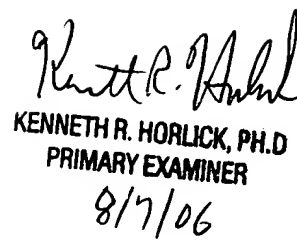 Kenneth R. Horlick
KENNETH R. HORLICK, PH.D
PRIMARY EXAMINER
8/7/06